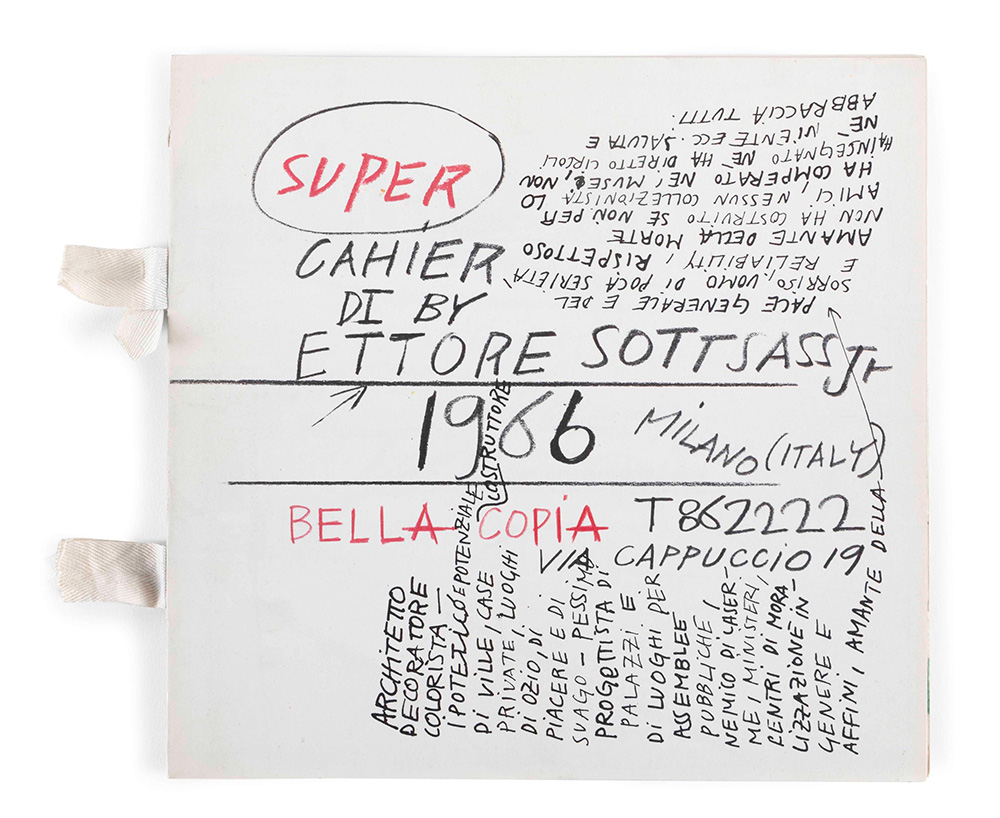 SUPER
CAHIER
DI BY
ETTORE SOTTSASS Jr
1966
MILANO (ITALY)
BELLA COPIA
T 862222
VIA CAPPUCCIO 19
ARCHITETTO
DECORATORE
COLORISTA —
IPOTETICO E POTENZIALE COSTRUTTORE
DI VILLE, CASE
PRIVATE, LUOGHI
DI OZIO, DI
PIACERE E DI
SVAGO – PESSIMO
PROGETTISTA DI
PALAZZI E
DI LUOGHI PER
ASSEMBLEE
PUBBLICHE,
NEMICO DI CASER-
ME, MINISTERI,
CENTRI DI MORA-
LIZZAZIONE IN
GENERE E
AFFINI, AMANTE DELLA
PACE GENERALE E DEL
SORRISO, UOMO DI POCA SERIETA'
E RELIABILITY, RISPETTOSO
AMANTE DELLA MORTE
NON HA COSTRUITO SE NON PER
AMICI, NESSUN COLLEZIONISTA LO
HA COMPERATO NE' MUSEI, NON
HA INSEGNATO NE' HA DIRETTO CIRCOLI
NE' NIENTE ECC. SALUTA E
ABBRACCIA TUTTI.